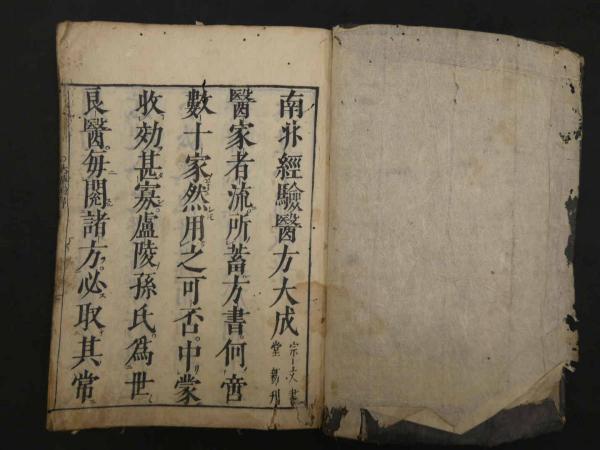 南北經驗醫方大成 宗文書堂新刊
醫家者流所蓄方書何啻
數十家然用之可否中蒙
收効甚寡盧陵孫氏爲世
良醫每閱諸方必取其常